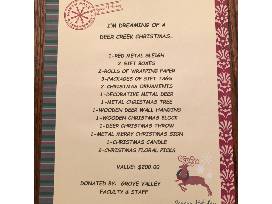 I'M DREAMING OF A
DEER CREEK CHRISTMAS...
1-RED METAL SLEIGH
2 GIFT BOXES
2-ROLLS OF WRAPPING PAPER
3-PACKAGES OF GIFT TAGS
2 CHRISTMAS ORNAMENTS
1-DECORATIVE METAL DEER
1-METAL CHRISTMAS TREE
1-WOODEN DEER WALL HANDING
1-WOODEN CHRISTMAS BLOCK
1-DEER CHRISTMAS THROW
1-METAL MERRY CHRISTMAS SIGN
1-CHRISTMAS CANDLE
2-CHRISTMAS FLORAL PICKS
VALUE: $200.00
DONATED BY: GROVE VALLEY
FACULTY & STAFF